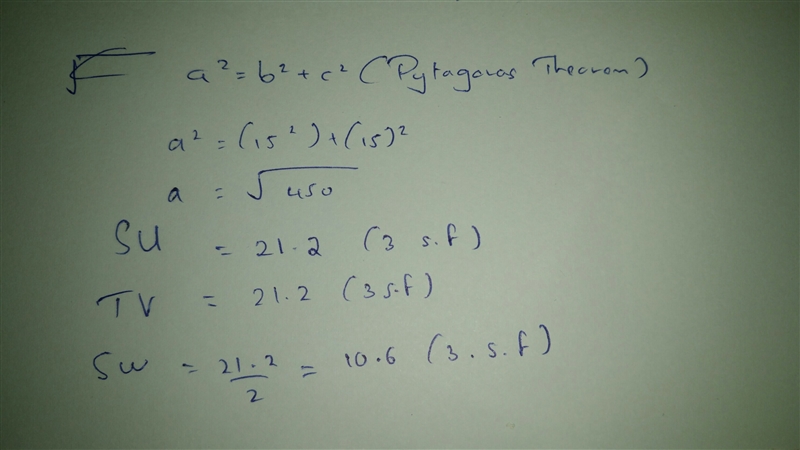 a² = b² + c² (Pytagoras Theorem)
a² = (15²) + (15)²
a = √450
SU = 21.2 (3 s.f)
TV = 21.2 (3 s.f)
SW = 21.2/2 = 10.6 (3.s.f)